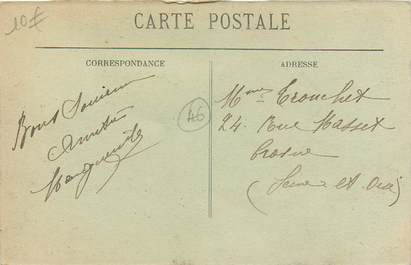 10€
CARTE POSTALE
CORRESPONDANCE
ADRESSE
Bons Souvenirs
Amitiés
Marguerite
46
Mme Trouchet
24. Rue Masset
Crosne
(Seine et Oise)